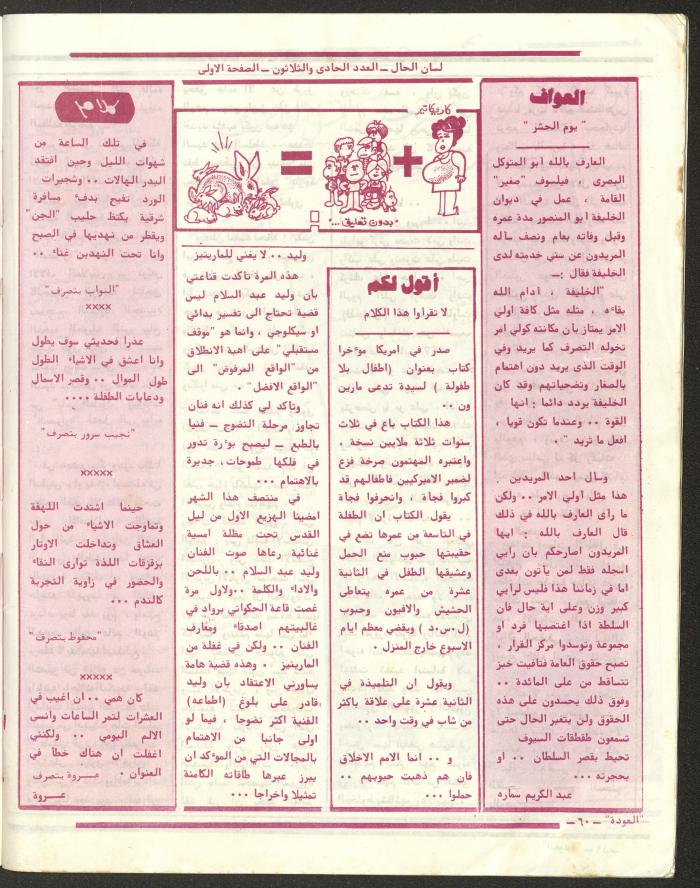 لسان الحال ــ العدد الحادى والثلاثون ــ الصفحة الاولى
العواف
" يوم الحشر "
العارف بالله أبو المتوكل
البصرى ، فيلسوف "صغير"
القامة ، عمل في ديوان
الخليفة ابو المنصور مدة عمره
وقبل وفاته بعام ونصف ساله
المريدون عن سني خدمته لدى
الخليفة فقال :ــ
"الخليفة ، أدام الله
بقاءه ، مثله مثل كافة اولي
الامر يمتاز بأن مكانته كولي امر
تخوله التصرف كما يريد وفي
الوقت الذى يريد دون اهتمام
بالصغار وتضحياتهم وقد كان
الخليفة يردد دائما : انها
القوة ٠٠ وعندما تكون قويا ،
افعل ما تريد " ٠
وسأل احد المريدين ٠
هذا مثل اولي الامر ٠٠ ولكن
ما رأى العارف بالله في ذلك
قال العارف بالله : ايها
المريدون اصارحكم بان رايي
اسجله فقط لمن يأتون بعدى
اما في زماننا هذا فليس لرايي
كبير وزن وعلى اية حال فان
السلطة اذا اغتصبها فرد او
مجموعة وتوسدوا مركز القرار ،
تصبح حقوق العامة فتافيت خبز
تتساقط من على المائدة ٠٠
وفوق ذلك يحسدون على هذه
الحقوق ولن يتغير الحال حتى
تسمعون طقطقات السيوف
تحيط بقصر السلطان ٠٠ او
بحجرته ٠٠٠
عبد الكريم سماره
كاريكاتير
+
=
"بدون تعليق ٠٠"
أقول لكم
لا تقرأوا هذا الكلام
صدر في امريكا موءخرا
كتاب بعنوان (اطفال بلا
طفولة ) لسيدة تدعى مارين
ون ٠٠
هذا الكتاب باع في ثلاث
سنوات ثلاثة ملايين نسخة ،
واعتبره المهتمون صرخة فزع
لضمير الاميركيين فاطفالهم قد
كبروا فجأة ، وانحرفوا فجأة
يقول الكتاب ان الطفلة
في التاسعة من عمرها تضع في
حقيبتها حبوب منع الحمل
وعشيقها الطفل في الثانية
عشرة من عمره يتعاطى
الحشيش والافيون وحبوب
(ل٠س٠د ) ويقضي معظم ايام
الاسبوع خارج المنزل ٠
ويقول ان التلميذة في
الثانية عشرة على علاقة باكثر
من شاب في وقت واحد ٠٠
و ٠٠ انما الامم الاخلاق
فان هم ذهبت حبوبهم ٠٠
حملوا ٠٠٠
وليد ٠٠ لا يغني للمارينيز
هذه المرة تاكدت قناعتي
بان وليد عبد السلام ليس
قضية تحتاج الى تفسير بدائي
او سيكلوجي ، وانما هو "موقف
مستقبلي" على اهبة الانطلاق
من "الواقع المرفوض" الى
"الواقع الافضل" ٠
وتأكد لي كذلك انه فنان
تجاوز مرحلة النضوج ــ فنيا
بالطبع ــ ليصبح بوءرة تدور
في فلكها طموحات، جديرة
بالاهتمام ٠٠٠
في منتصف هذا الشهر
امضينا الهزيع الاول من ليل
القدس تحت مظلة امسية
غنائية رعاها صوت الفنان
وليد عبد السلام ٠٠ باللحن
والاداء والكلمة ٠٠ولاول مرة
غصت قاعة الحكواتي برواد في
غالبيتهم اصدقاء ومعارف
الفنان ٠٠ ولكن في غفلة من
المارينيز ٠ وهذه قضية هامة
يساورني الاعتقاد بان وليد
قادر على بلوغ (اطماعه)
الفنية اكثر نضوجا ، فيما لو
اولى جانبا من الاهتمام
بالمجالات التي من الموءكد ان
يبرز عبرها طاقاته الكامنة
تمثيلا واخراجا ٠٠٠
كلام
في تلك الساعة من
شهوات الليل وحين افتقد
البدر الهالات ٠٠ وشجيرات
الورد تفيح بدفء مسافرة
شرقية يكتظ حليب "الجن"
ويقطر من نهديها في الصبح
وانا تحت النهدين غناء ٠٠
"النواب بتصرف"
xxxx
عذرا فحديثي سوف يطول
وانا اعشق في الاشياء الطول
طول الموال ٠٠ وقصر الاسمال
ودعابات الطفلة ٠٠٠٠
"نجيب سرور بتصرف"
xxxxx
حينما اشتدت اللهفة
وتماوجت الاشياء من حول
العشاق وتداخلت الاوتار
بزقزقات اللذة توارى النقاء
والحضور في زاوية التجربة
كالندم ٠٠٠
"محفوظ بتصرف"
xxxxx
كان همي ٠٠ ان اغيب في
العشرات لتمر الساعات وانسى
الالم اليومي ٠٠ ولكنني
اغفلت ان هناك خطأ في
العنوان ٠ عــروة بتصرف
عــــروة
"العودة" ــ ٦٠ ــ